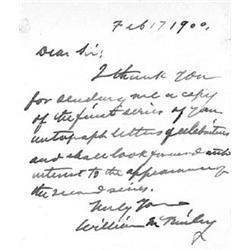 Feb 17 1900.
Dear Sir:
I thank you
for sending me a copy
of the first series of your
autograph letters of celebrities
and shall look forward with
interest to the appearance of
the second series.
Truly Yours
William McKinley